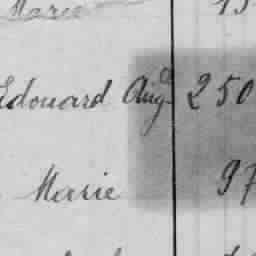 Marie 15
Edouard Aug.te 250
Marie 97